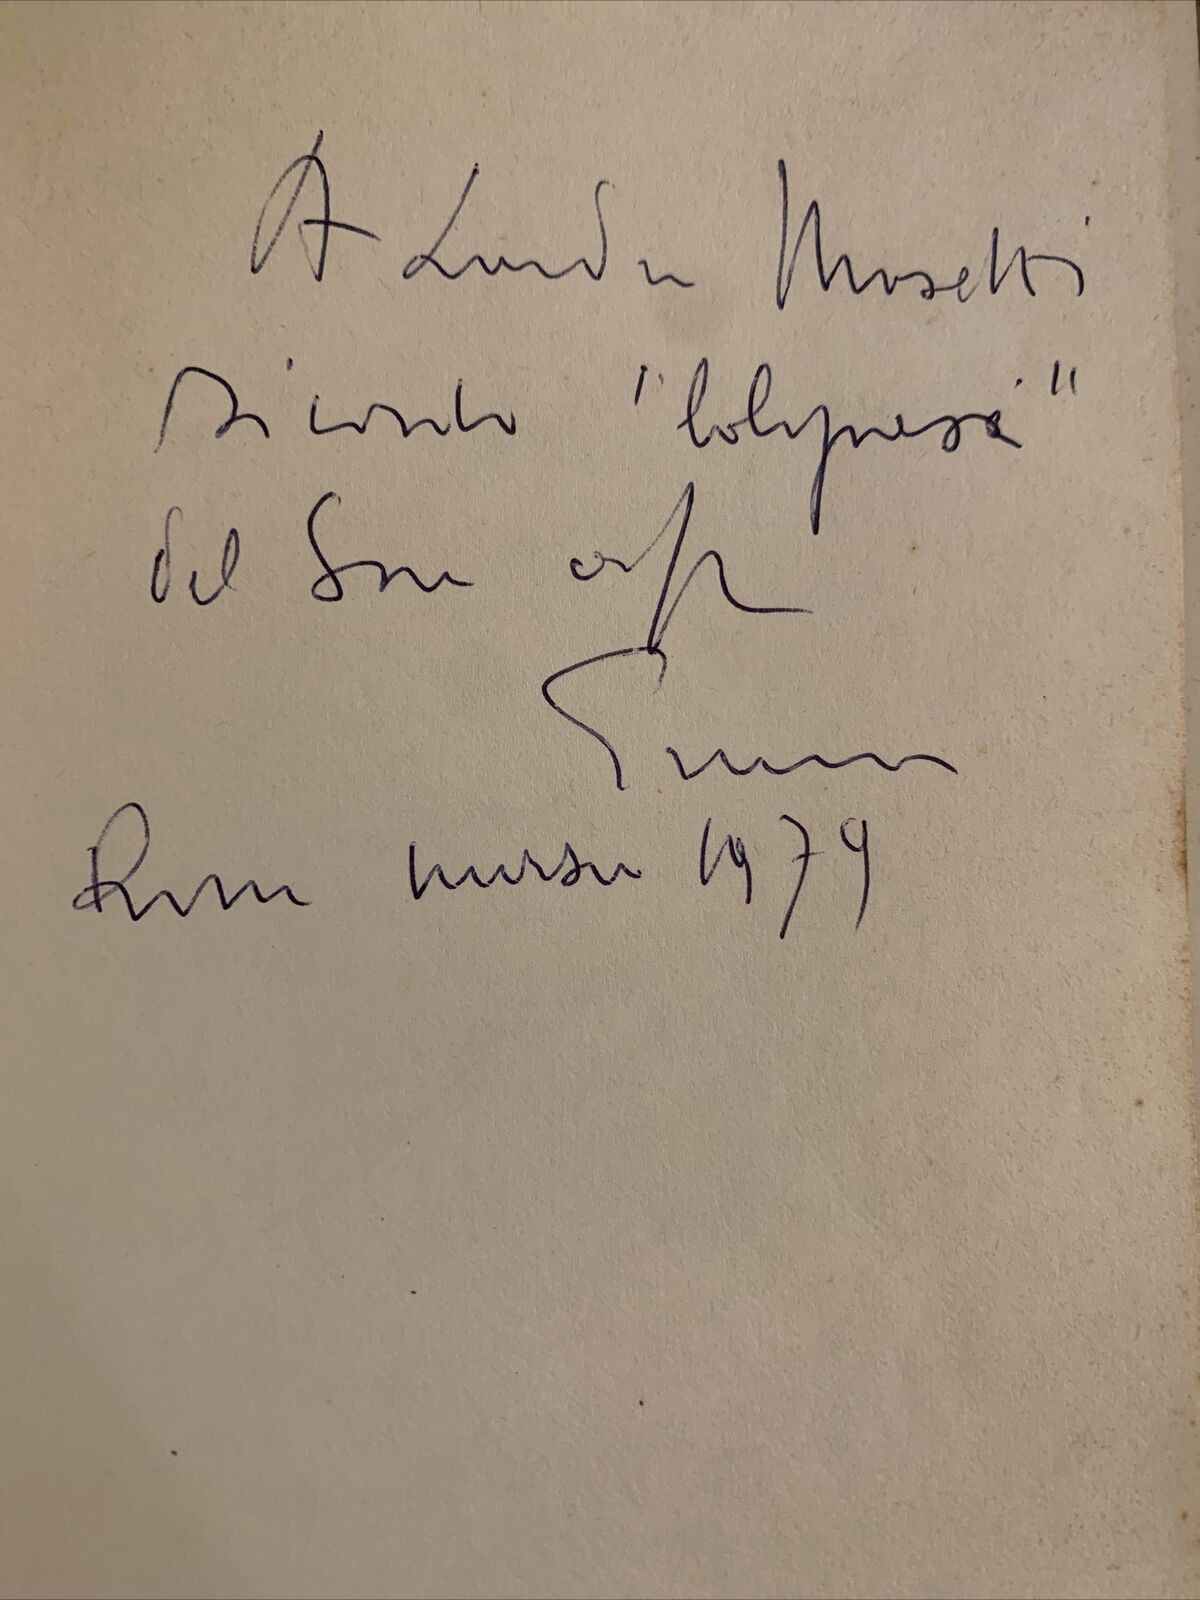 A Landa Mosetti
ricordo "bolognese"
del Suo
Roma marzo 1979